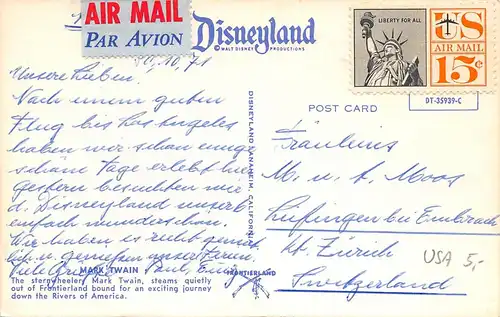 AIR MAIL
PAR AVION
Disneyland
© WALT DISNEY PRODUCTIONS
LIBERTY FOR ALL
US
AIR MAIL
15¢
DT-35939-C
POST CARD
DISNEYLAND • ANAHEIM, CALIFORNIA
10. 71
Unsere Lieben.
Nach einem guten
Flug bis Los Angeles
haben wir schon einige
schöne Tage erlebt
gestern besuchten wir
d. Disneyland
einfach wunderschön.
Wir haben es recht
u. geniessen unsere Ferien.
Viele
Fräuleins
M. u. A. Moos
Lufingen bei Embrach
Kt. Zürich
Switzerland
USA 5,-
MARK TWAIN
FRONTIERLAND
The sternwheeler, Mark Twain, steams quietly
out of Frontierland bound for an exciting journey
down the Rivers of America.